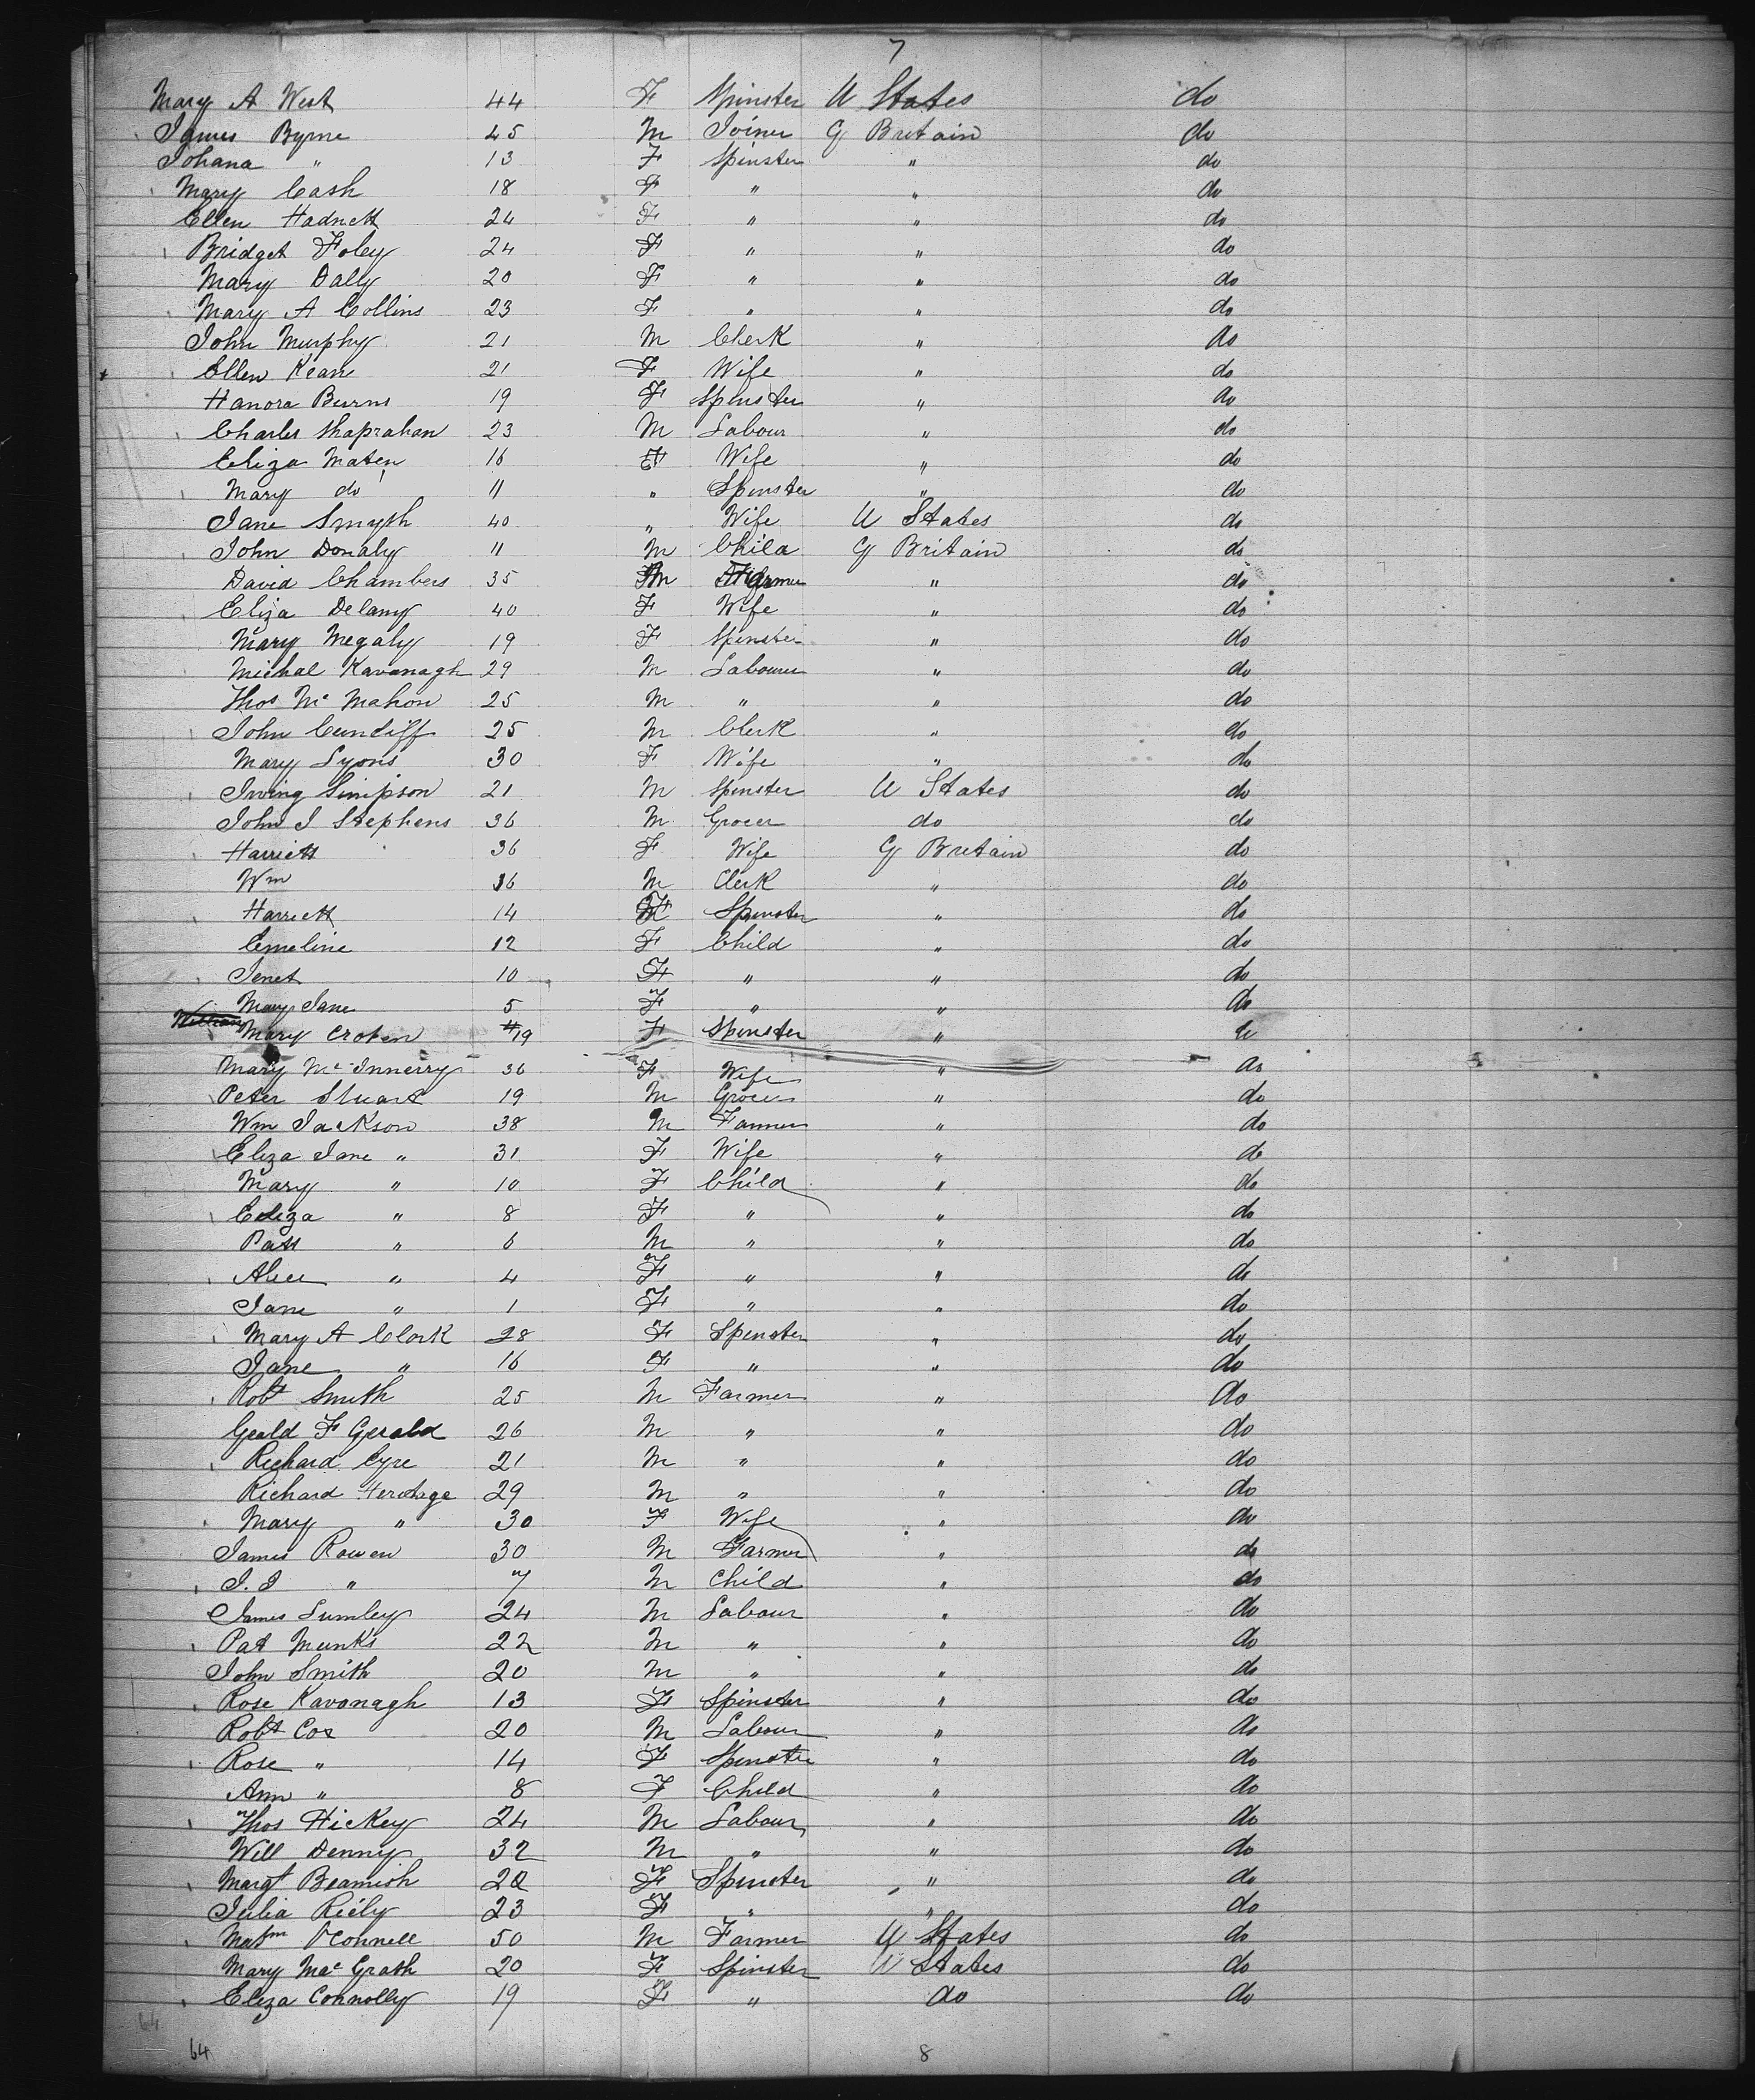 7
Mary A West 44 F Spinster U States do
James Byrne 45 M Joiner G Britain do
Johana " 13 F Spinster " do
Mary Cash 18 F " " do
Ellen Hadnett 24 F " " do
Bridget Foley 24 F " " do
Mary Daly 20 F " " do
Mary A Collins 23 F " " do
John Murphy 21 M Clerk " do
Ellen Kean 21 F Wife " do
Hanora Burns 19 F Spinster " do
Charles Shaprahan 23 M Labour " do
Eliza Maten 16 F Wife " do
Mary do 11 " Spinster " do
Jane Smyth 40 " Wife U States do
John Donaly 11 M Child G Britain do
David Chambers 35 M Farmer " do
Eliza Delany 40 F Wife " do
Mary Megaly 19 F Spinster " do
Michal Kavanagh 29 M Labourer " do
Thos Mc Mahon 25 M " " do
John Cundiff 25 M Clerk " do
Mary Lyons 30 F Wife " do
Irving Simpson 21 M Spinster U States do
John J Stephens 36 M Grocer do do
Harriett 36 F Wife G Britain do
Wm 16 M Clerk " do
Harriett 14 F Spinster " do
Emeline 12 F Child " do
Jenet 10 F " " do
Mary Jane 5 F " " do
Mary Croten 19 F Spinster " do
Mary Mc Innerry 36 F Wife " do
Peter Stuart 19 M Grocer " do
Wm Jackson 38 M Farmer " do
Eliza Jane " 31 F Wife " do
Mary " 10 F Child " do
Eliza " 8 F " " do
Patt " 6 M " " do
Alice " 4 F " " do
Jane " 1 F " " do
Mary A Clark 28 F Spinster " do
Jane " 16 F " " do
Robt Smith 25 M Farmer " do
Gerald F Gerald 26 M " " do
Richard Cyre 21 M " " do
Richard Heritage 29 M " " do
Mary " 30 F Wife " do
James Rowen 30 M Farmer " do
J. J " 7 M Child " do
James Lumley 24 M Labour " do
Pat Munks 22 M " " do
John Smith 20 M " " do
Rose Kavanagh 13 F Spinster " do
Robt Cox 20 M Labour " do
Rose " 14 F Spinster " do
Ann " 8 F Child " do
Thos Hickey 24 M Labour " do
Will Denny 32 M " " do
Margt Beamish 22 F Spinster " do
Julia Riely 23 F " " do
O'Connell 50 M Farmer U States do
Mary Mac Grath 20 F Spinster U States do
Eliza Connolly 19 F " do do
64
64 8